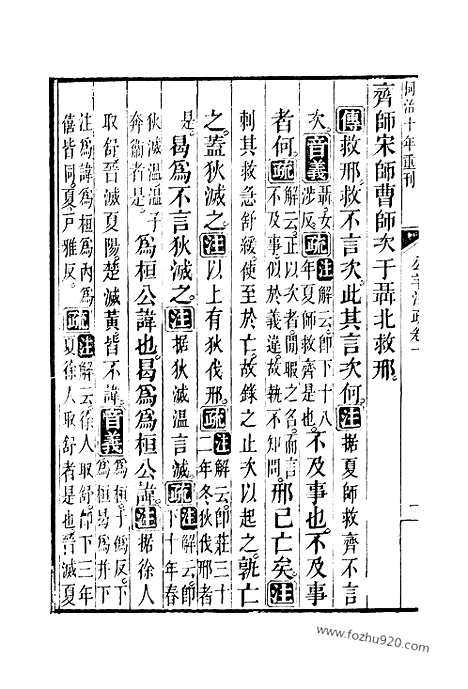 同治十年重刊
公羊注疏卷
二
齊師宋師曹師次于聶北救邢。
傳救邢救不言次此其言次何。注据夏師救齊不言
次。音義聶女涉反。疏注解云即下十八年夏師救齊是也。不及事也。不及事
者何。疏解云正以次者閒暇之名而言不及事似於義違故執不知問。邢已亡矣。注
刺其救急舒緩使至於亡故錄之止次以起之。孰亡
之。蓋狄滅之。注以上有狄伐邢。疏注解云即莊三十二年冬狄伐邢者
是。曷爲不言狄滅之。注据狄滅溫言滅。疏注解云即下十年春
狄滅溫溫子奔衞者是。爲桓公諱也。曷爲爲桓公諱。注据徐人
取舒晉滅夏陽楚滅黃皆不諱。音義爲桓于僞反下爲桓曷爲并下
注爲諱爲桓爲內爲僖皆同。夏戶雅反。疏注解云徐人取舒即下三年夏徐人取舒者是也晉滅夏
www.fozhu920.com